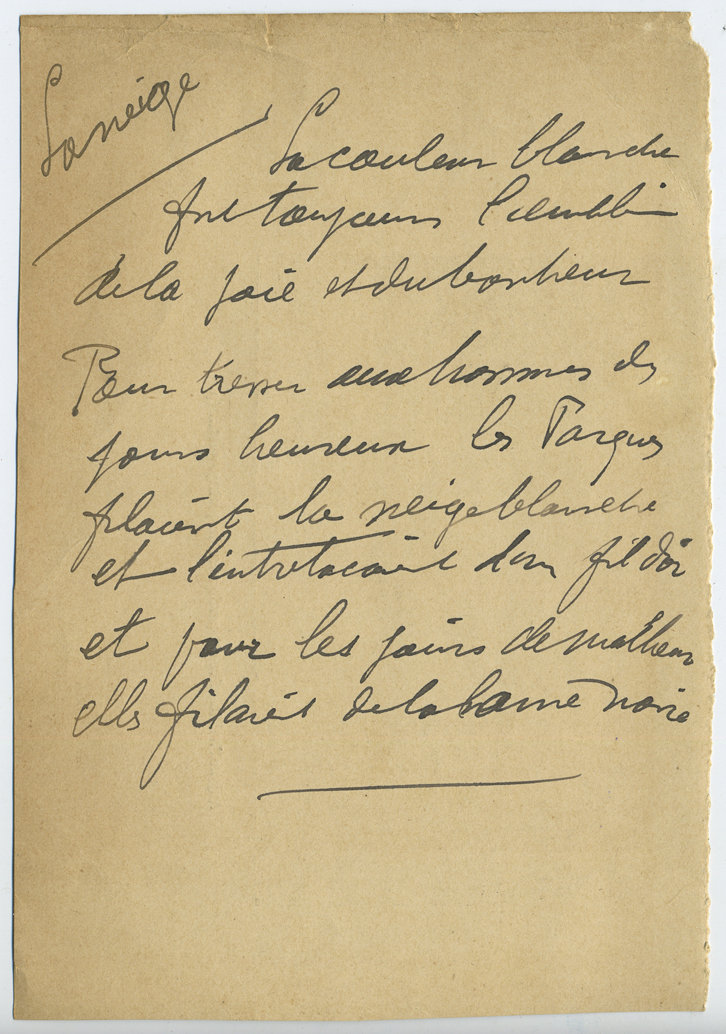 La neige
La couleur blanche
fut toujours l'emblème
de la joie et du bonheur
Pour tresser aux hommes des
jours heureux les Parques
filaient la neige blanche
et l'entrelaçait d'un fil d'or
et pour les jours de malheur
elles filaient de la laine noire